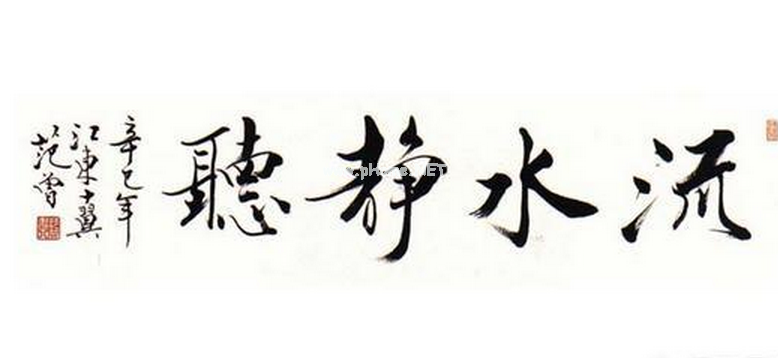 流水静聽
辛巳年
江東十翼
范曾